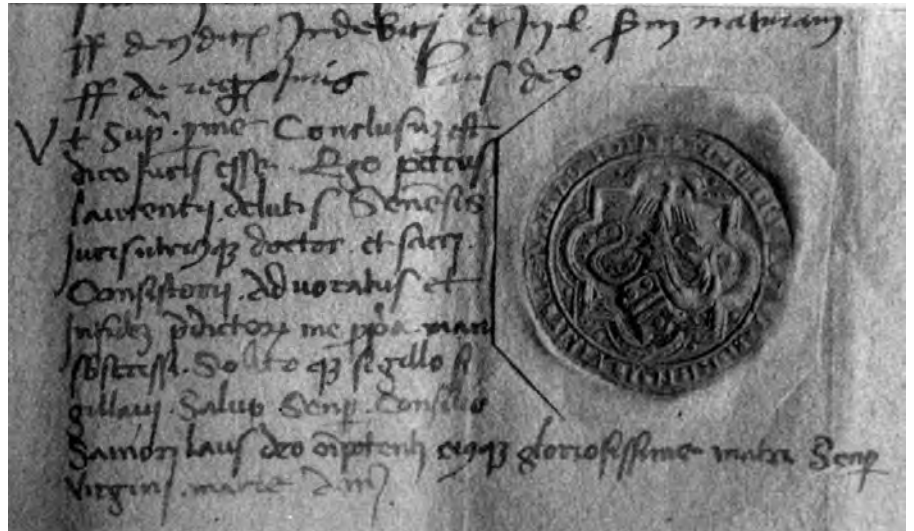 ff de ɔditꝭ Indebiti et in l. naturam
ff de regꝭ Juris Laus deo
Vt Supͣ. ꝑ me Conclusuʒ est
dico Juris esse. Ego petrus
laurentij. de lutis Senēsis
Juris utriusqꝫ doctor. et sacri
Consistorij. Aduocatus et
infideʒ p̄dictorꝝ me ꝓpͥa man
sbscrissi. Solito qꝫ sigillo si
gillaui. Saluo. Semꝑ. Consilio
Sanioꝝ laus deo oīpotenti eiqꝫ gloriosissime matri Semꝑ
virgini. marie